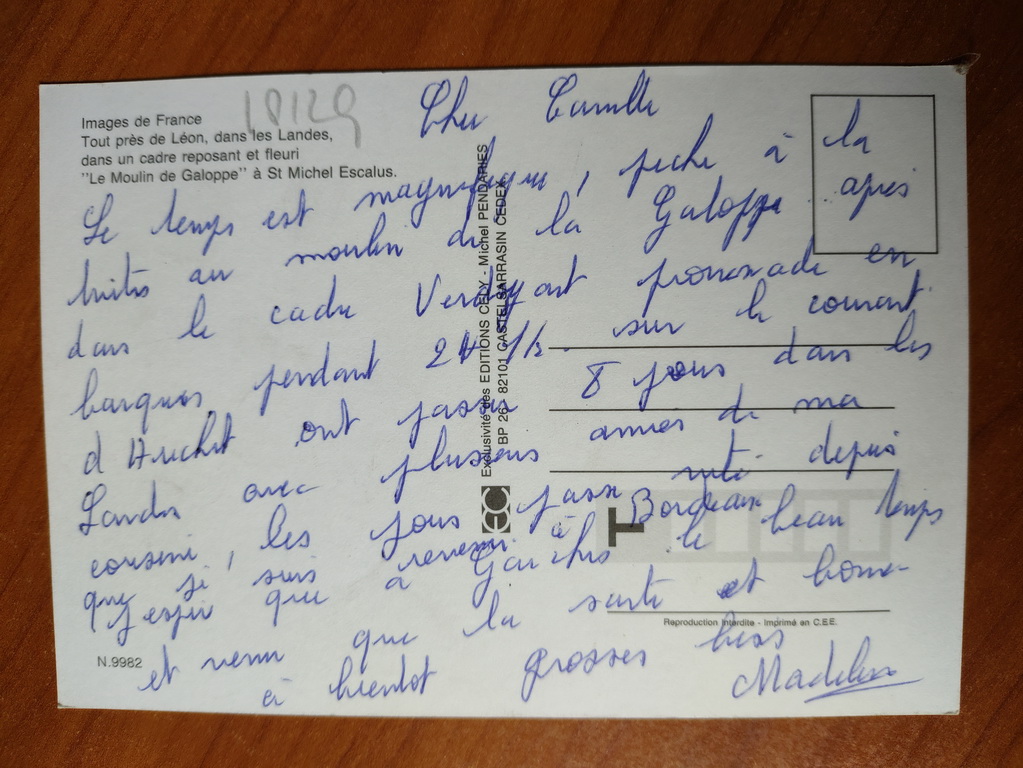 18129
Images de France
Tout près de Léon, dans les Landes,
dans un cadre reposant et fleuri
"Le Moulin de Galoppe" à St Michel Escalus.
Cher Camille
Le temps est magnifique, peche à la
truites au moulin de la Galoppe après
dans le cadre Verdoyant promenade en
barques pendant 2H 1/2 sur le courant
d'Huchet ont passer 8 jours dans les
Landes avec plusieurs amies de ma
cousine, les jours passe vite depuis
que je suis revenu à Bordeaux
J'espir que à Garches le beau temps
et venu que la santé et bonne
à bientot grosses bises
Madeleine
Exclusivité des EDITIONS CELY - Michel PENDARIES
BP 26 - 82101 CASTELSARRASIN CEDEX
EC
T
Reproduction Interdite - Imprimé en C.E.E.
N.9982